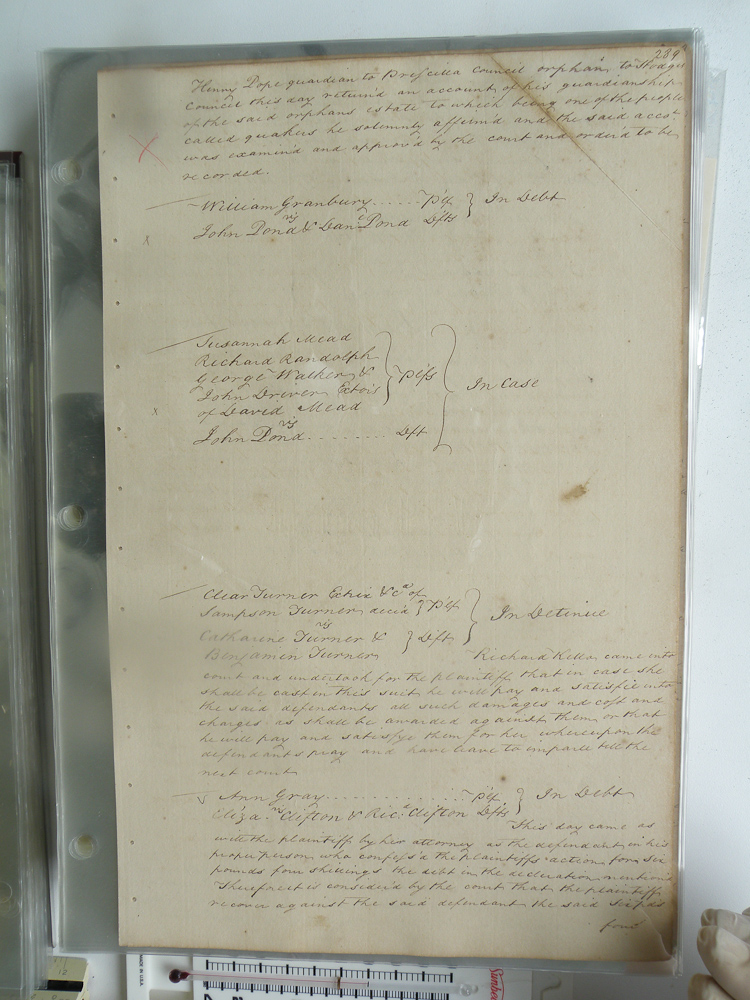 289
Henry Pope guardian to Prescilla Council orphan to Hodges
Council this day return'd an account of his guardianship
of the said orphans estate to which being one of the people
called quakers he solemnly affirm'd and the said acco.t
was examin'd and approv'd by the court and order'd to be
recorded.
William Granbury...... Plt } In Debt
vs
John Pond & Dan.l Pond Dfts
Susannah Mead
Richard Randolph
George Walker &
John Driver Exōrs } Plts } In Case
of David Mead
vs
John Pond ........ Dft
Clear Turner Extrix &c.a of
Sampson Turner dec'd } Plt } In Detinue
vs
Catharine Turner & } Dfts
Benjamin Turner
Richard Kello came into
court and undertook for the plaintiff that in case she
shall be cast in this suit he will pay and satisfie unto
the said defendants all such damages and cost and
charges as shall be awarded against them or that
he will pay and satisfye them for her whereupon the
defendants pray and have leave to imparle till the
next court
Ann Gray .............. Plt } In Debt
vs
Eliza. Clifton & Ric.d Clifton Dfts
This day came as
well the plaintiff by her attorney as the defendant in his
proper person who confess'd the plaintiffs action for six
pounds four shillings the debt in the declaration mention'd
Therefore it is consider'd by the court that the plaintiff
recover against the said defendant the said six pds
four
MADE IN U.S.A.